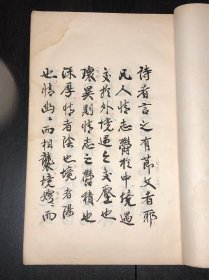 詩者言之有節文者耶
凡人情志鬱於中境遇
交於外境遇之交壓也
瓌異則情志之鬱積也
深厚情者陰也境者陽
也情幽幽而相襲境嫚嫚而